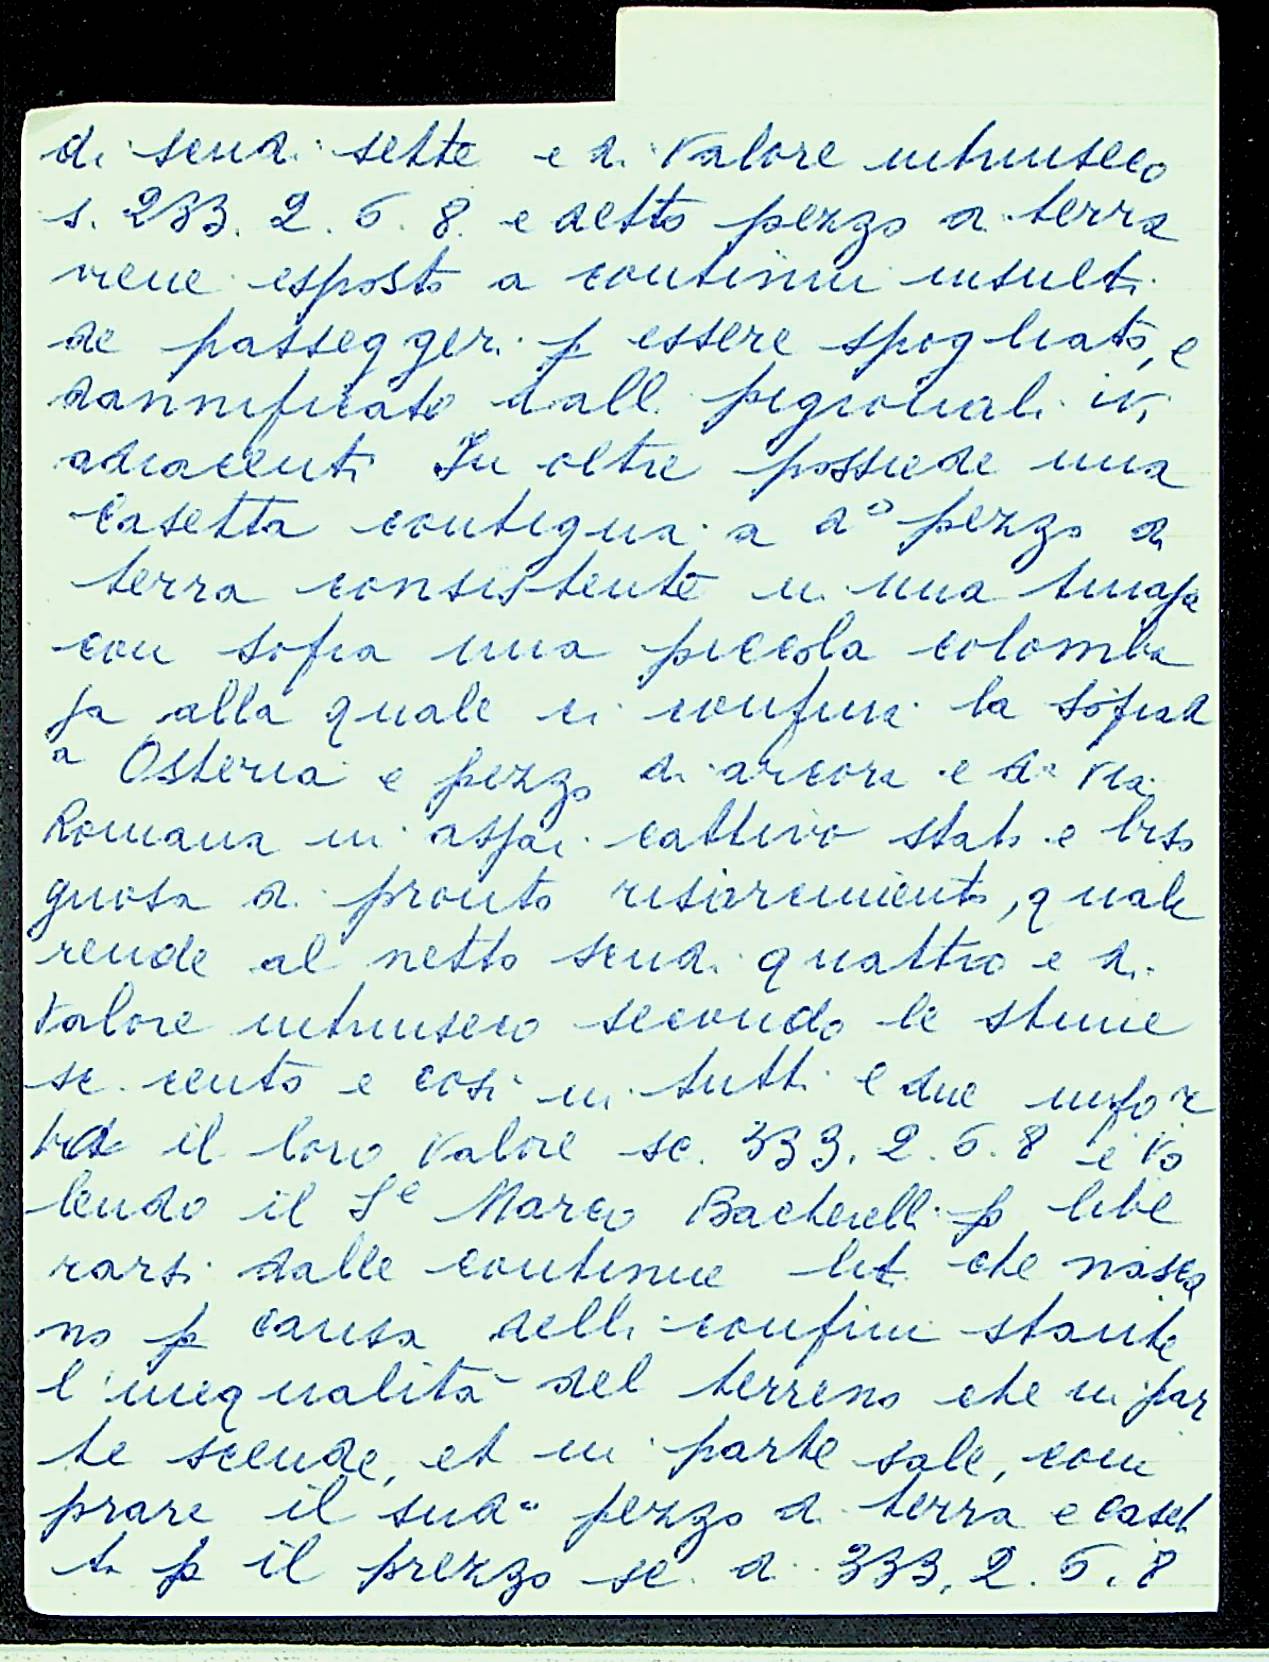 di scudi sette e di valore intrinseco
s. 233. 2. 6. 8. e detto pezzo di terra
viene esposto a continui insulti
de passeggeri p essere spogliato, e
dannificato dall pigionali ivi
adiacenti In oltre possiede una
casetta contigua a do pezzo di
terra consistente in una tinaja
con sopra una piccola colomba
ja alla quale ci confina la soprad
a Osteria e pezzo di ancora e da via
Romana in assai cattivo stato e biso
gnosa di pronto risarcimento, quale
rende al netto scudi quattro e di
valore intrinseco secondo le stime
sc. cento e così in tutti e due impor
ta il loro valore sc. 333. 2. 6. 8 e vo
lendo il Se Marco Bacherelli p libe
rarsi dalle continue lit che nasco
no p causa delli confini stante
l'inequalità del terreno che in par
te scende, et in parte sale, com
prare il sudo pezzo di terra e caset
ta p il prezzo sc. di 333. 2. 6. 8